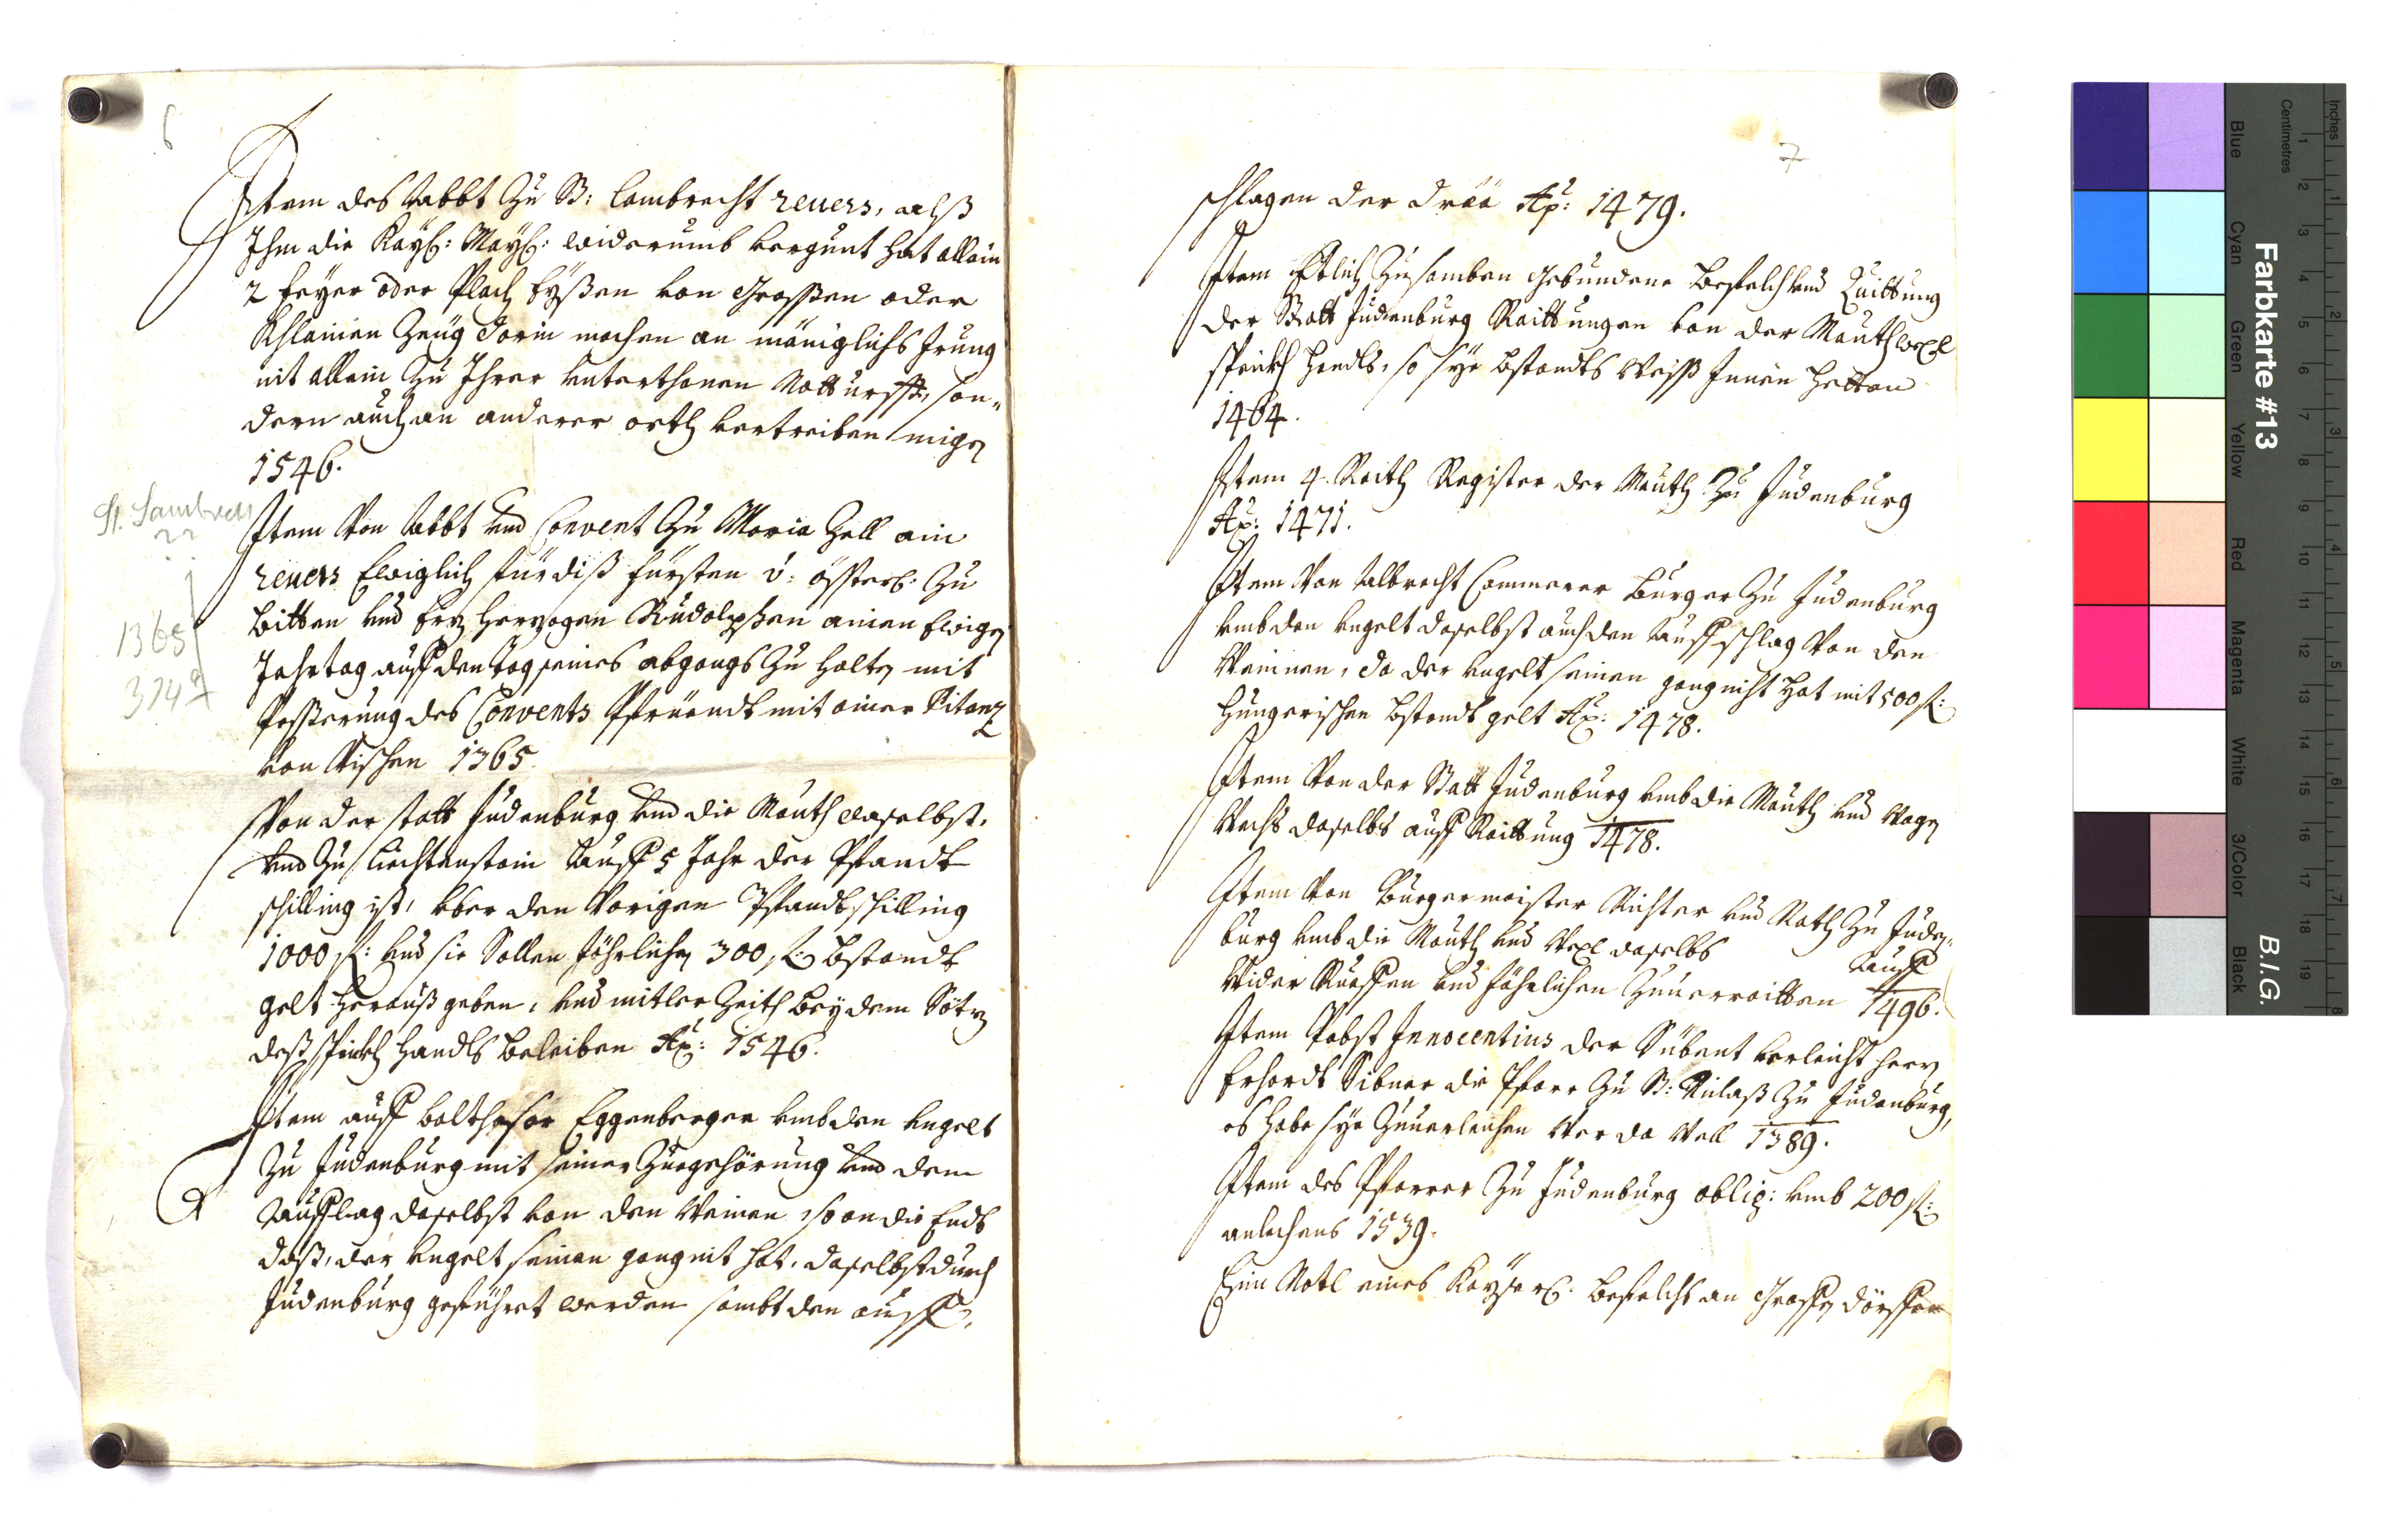 6
Item des Abbt Zu St: Lambrecht revers, alß
Ihm die Kayß: Mayß: widerumb vergunt hat allain
2 feyer oder Plach eyßen von Grossen oder
Khlainen Zeug darin machen an mäniglichs Irung
nit allain Zu Ihrer Unterthonen Notturfft, son„
dern auch an anderer orth vertreiben migen
1546.
St. Lambrecht
Item Von Abbt Und Convent Zu Maria Zell ain
revers Ewiglich für diß fürsten v: össterr: Zu
bitten und Erz Herzogen Rudolphen ainen Ewigen
Jahrtag auff den tag seines abgangs Zu halten mit
Pesserung des Convents Pfrüendt mit ainer Pitantz
von Vischen 1365.
1365
Von der statt Judenburg Umb die Mauth daselbst,
Und Zu Liechtenstain Auff 5 Jahr der Pfandt
schilling ist, über den Vorigen Pfandtschilling
1000 fl: und sie Sollen Jährlichen 300 fl: bstandt
gelt herauß geben, und mitler Zeith bey dem Sötz
deß spickh Handls beleiben Ao: 1546.
Item auff balthasar Eggenberger umb den Ungelt
Zu Judenburg mit seiner Zuegehörung Und dem
Aufflag daselbst von den Weinen, so an die Endt
daß, der ungelt seinen gang nit hat, daselbst durch
Judenburg geführet werden sambt den auff„
7
schlagen der Ao: 1479.
Item Etlich Zusamben Gebundene befelch und Quittung
der Statt Judenburg Raittungen von der Mauth wexl
spickh Handls, so sye bstandts Weiß Innen hetten
1464.
Item 4. Raith Register der Mauth Zu Judenburg
Ao: 1471.
Item Von Albrecht Cammerer Burger Zu Judenburg
umb den ungelt daselbst auch den Auffschlag Von den
Weinnen, da der ungelt seinen gang nicht hat mit 500 fl:
Hungerischen bstandt gelt Ao: 1478.
Item Von der Statt Judenburg umb die Mauth und Wagen
Wechs daselbs auff Raittung 1478.
Item Von Burgermaister Richter und Rath Zu Juden„
burg umb die Mauth und Wexl daselbs Auff
Wider Rueffen und Jährlichen Zuuerraitten 1496.
Item Pabst Innocentius der Sübent verleicht herrn
Erhardt Sibner die Pfarr Zu St: Niclaß Zu Judenburg,
es habe sye Zuuerleichen Wer da Well 1389.
Item des Pfarrer Zu Judenburg oblig: umb 200 fl:
anlechens 1539.
Ein Notl eines Kayserl: befelchs an Grossen dörffer
Farbkarte #13
B.I.G.
Inches
Centimetres
Blue
Cyan
Green
Yellow
Red
Magenta
White
3/Color
Black
1 2 3 4 5 6 7 8 9 10 11 12 13 14 15 16 17 18 19
1 2 3 4 5 6 7 8